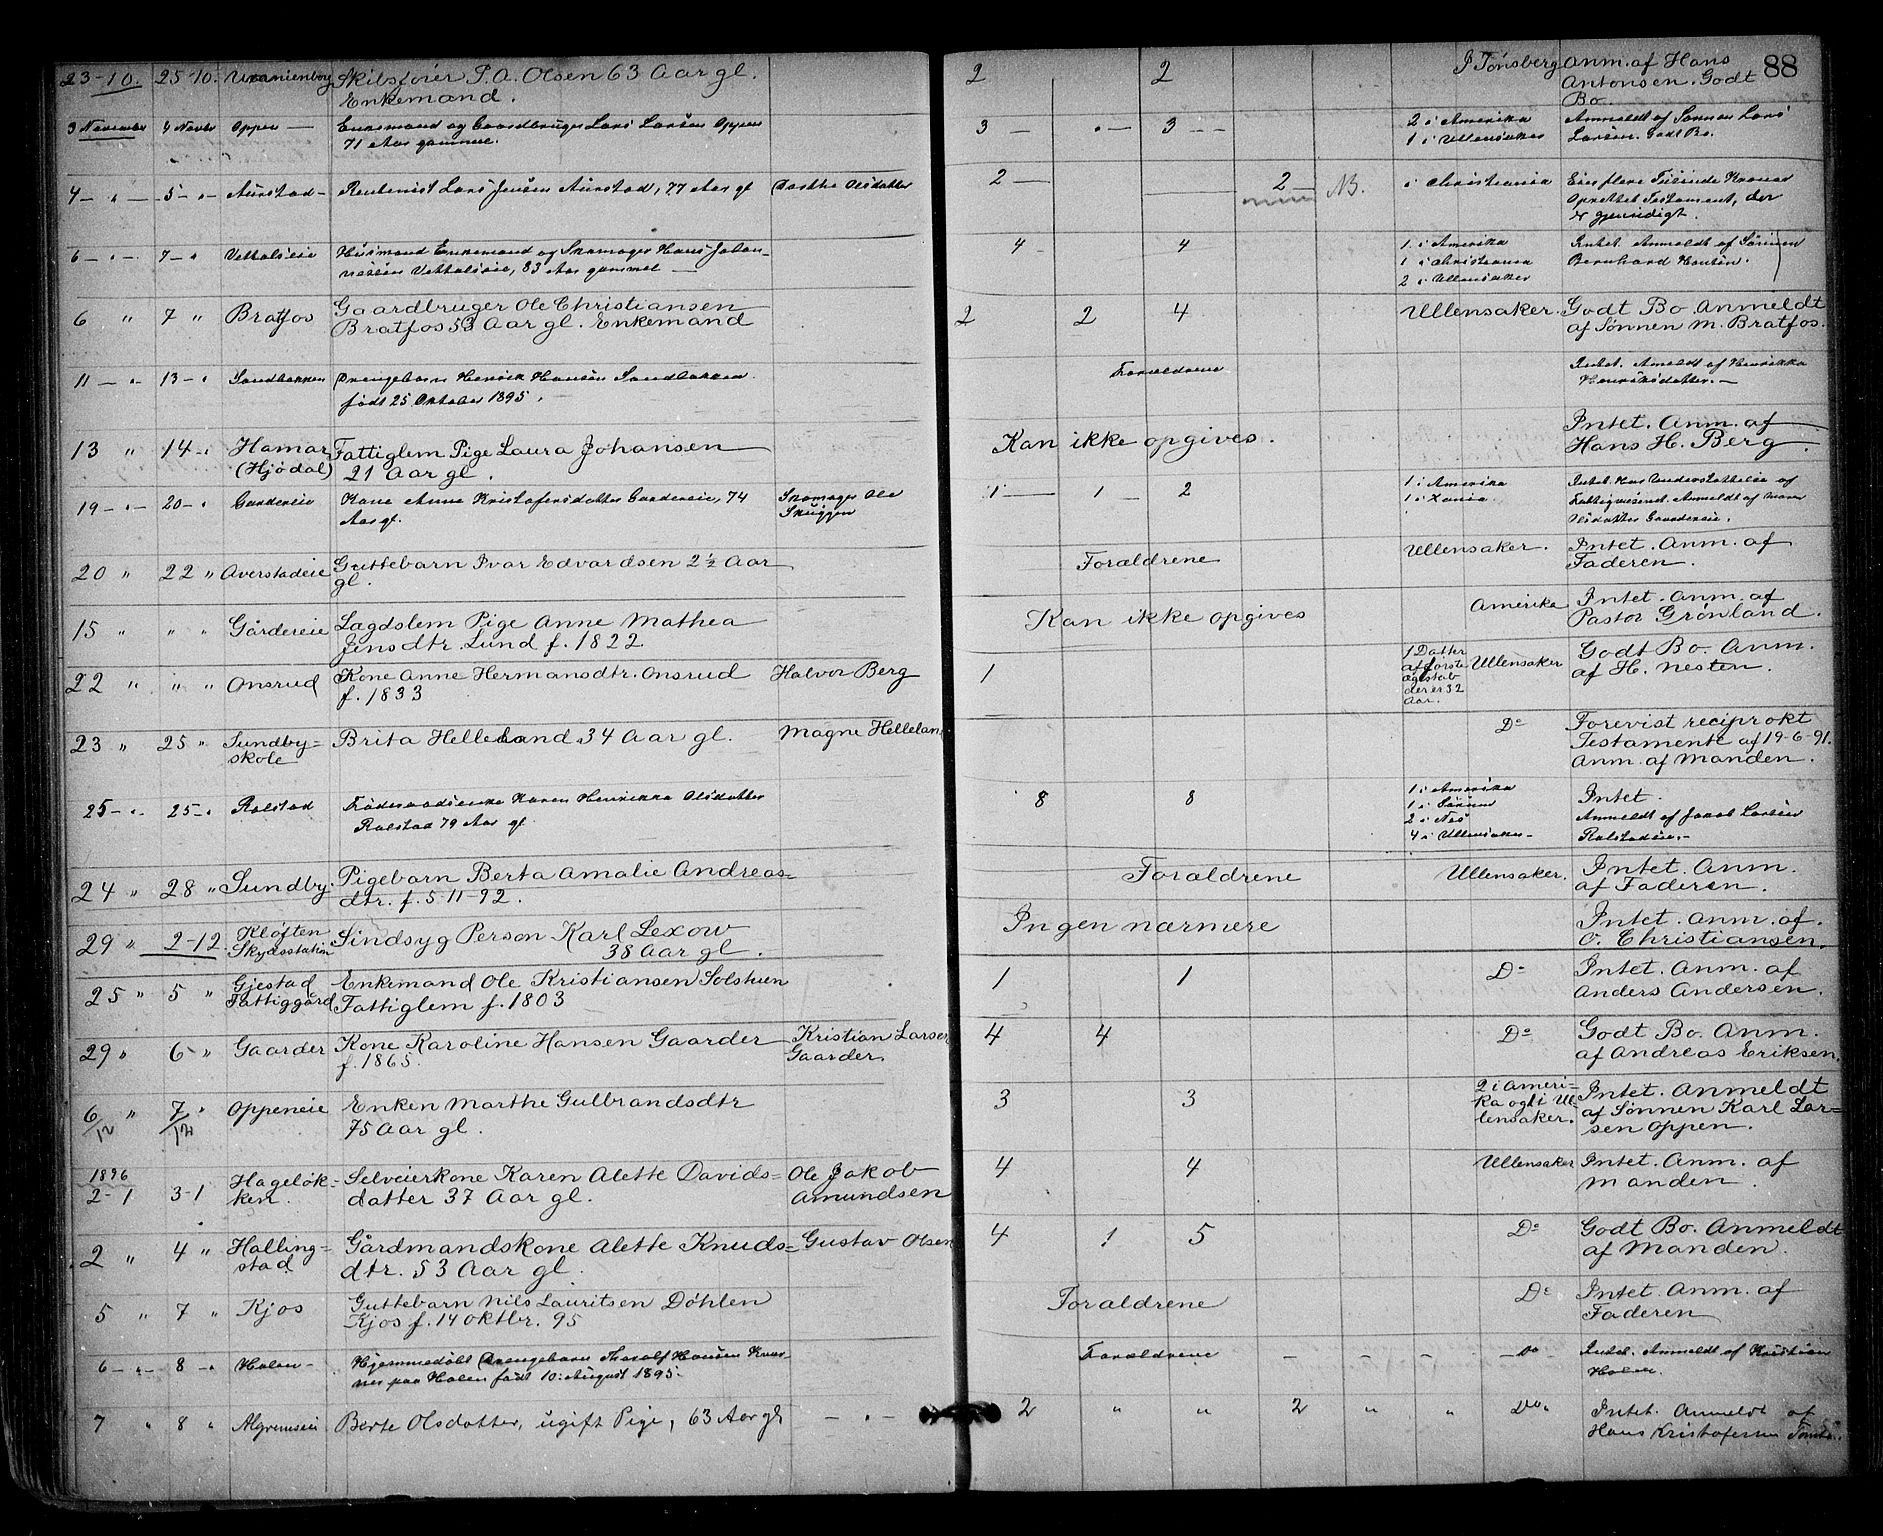 88
23-10. 25-10. Uranienborg Skibsfører P. A. Olsen 63 Aar gl. 2 2 I Tønsberg Anm. af Hans
Enkemand. Antonsen. Godt
Bo.
3 November 4 Novbr Oppen — Enkemand og Gaardbruger Lars Larsen Oppen 3 — 3 — 2 i Amerika Anmeldt af Sønnen Lars
71 Aar gammel. 1 i Ullensaker Larsen. Godt Bo.
4 — " — 5 — " Aurstad — Rentenist Lars Jensen Aurstad, 77 Aar gl Dorthe Olsdatter 2 — 2 — NB. i Christiania Eier flere Tusinde Kroner
Oprettet Testament, der
er gjensidigt.
6 — " — 7 — " Vethalseie Husmand Enkemand og Skomager Hans Johan- 4 — 4 1 i Amerika Intet. Anmeldt af Sønnen
nessen Vethalseie, 83 Aar gammel — 1 i Christiania Bernhard Hansen.
2 i Ullensaker
6 " 7 " Bratfos Gaardbruger Ole Christiansen 2 2 4 Ullensaker. Godt Bo Anmeldt
Bratfos 53 Aar gl. Enkemand af Sønnen M. Bratfos.
11 — " — 13 — " Sandbakken Drengebarn Henrik Hansen Sandbakken. Forældrene Intet. Anmeldt af Henrikka
født 25 Oktober 1895. Henriksdatter. —
13 " 14 " Hamar Fattiglem Pige Laura Johansen Kan ikke opgives. Intet. Anm. af
(Hjødal) 21 Aar gl. Hans H. Berg.
19 — " — 20 — " Gardereie Kone Anne Kristofersdatter Gardereie, 74 Skomager Ole 1 — 1 — 2 1 i Amerika Intet. Har Understøttelse af
Aar gl. Skuggen 1 i Xania Fattigvæsenet. Anmeldt af Maren
Olsdatter Gaardereie.
20 " 22 " Averstadeie Guttebarn Ivar Edvardsen 2½ Aar Forældrene Ullensaker. Intet. Anm. af
gl. Faderen.
15 " " " Gårdereie Lægdslem Pige Anne Mathea Kan ikke opgives Amerika Intet. Anm. af
Jensdtr. Lund f. 1822 Pastor Grønland.
22 " " " Onsrud Kone Anne Hermansdtr. Onsrud Halvor Berg 1 1 Datter Ullensaker Godt Bo. Anm.
f. 1833 af første af H. Nesten.
ægteskab
der er 32
Aar.
23 " 25 " Sundby= Brita Helleland 34 Aar gl. Magne Hellelan D<sup>o</sup> Forevist reciprokt
skole Testamente af 19-6-91.
Anm. af Manden.
25 — " — 25 — " Ralstad Føderaadsenke Karen Henrikka Olsdatter 8 8 1 i Amerika Intet.
Ralstad 79 Aar gl. 1 i Sørum Anmeldt af Jakob Larsen
2 i Nes Ralstadeie. —
4 i Ullensaker
24 " 28 " Sundby Pigebarn Berta Amalie Andreas= Forældrene Ullensaker. Intet. Anm.
dtr. f. 5-11-92. af Faderen.
29 " 2-12 Kløften Sindsyg Person Karl Lexow Ingen nærmere Intet. Anm. af
Skydsstation 38 Aar gl. O. Christiansen.
25 " 5 " Gjestad Enkemand Ole Kristiansen Solstuen 1 1 D<sup>o</sup> Intet. Anm. af
Fattiggård Fattiglem f. 1803 Anders Andersen.
29 " 6 " Gaarder Kone Karoline Hansen Gaarder Kristian Larsen 4 4 D<sup>o</sup> Godt Bo. Anm.
f. 1865. Gaarder. af Andreas Eriksen.
6/12 " 7/12 " Oppeneie Enken Marthe Gulbrandsdtr 3 3 2 i Ameri= Intet. Anmeldt
75 Aar gl. ka og 1 i Ul= af Sønnen Karl Lar=
lensaker. sen Oppen.
1896
2-1 3-1 Hageløk= Selveierkone Karen Alette Davids= Ole Jakob 4 4 Ullensaker Intet. Anm. af
ken. datter 37 Aar gl. Amundsen Manden.
2 " 4 " Halling= Gårdmandskone Alette Knuds= Gustav Olsen 4 1 5 D<sup>o</sup> Godt Bo. Anmeldt
stad dtr. 53 Aar gl. af Manden.
5 " 7 " Kjos Guttebarn Nils Lauritsen Døhlen Forældrene D<sup>o</sup> Intet. Anm. af
Kjos f. 14 oktbr. 95 Faderen
6 — " — 8 — " Holen — Hjemmedøbt Drengebarn Thoralf Hansen Forældrene — — — — Do Intet. Anmeldt af Kristian
paa Holen født 10. August 1895. Holen.
7 " 8 " Algrenseie Berte Olsdatter, ugift Pige, 63 Aar gl — " — 2 " " 2 " " Do. Intet. Anmeldt af
Hans Kristofersen